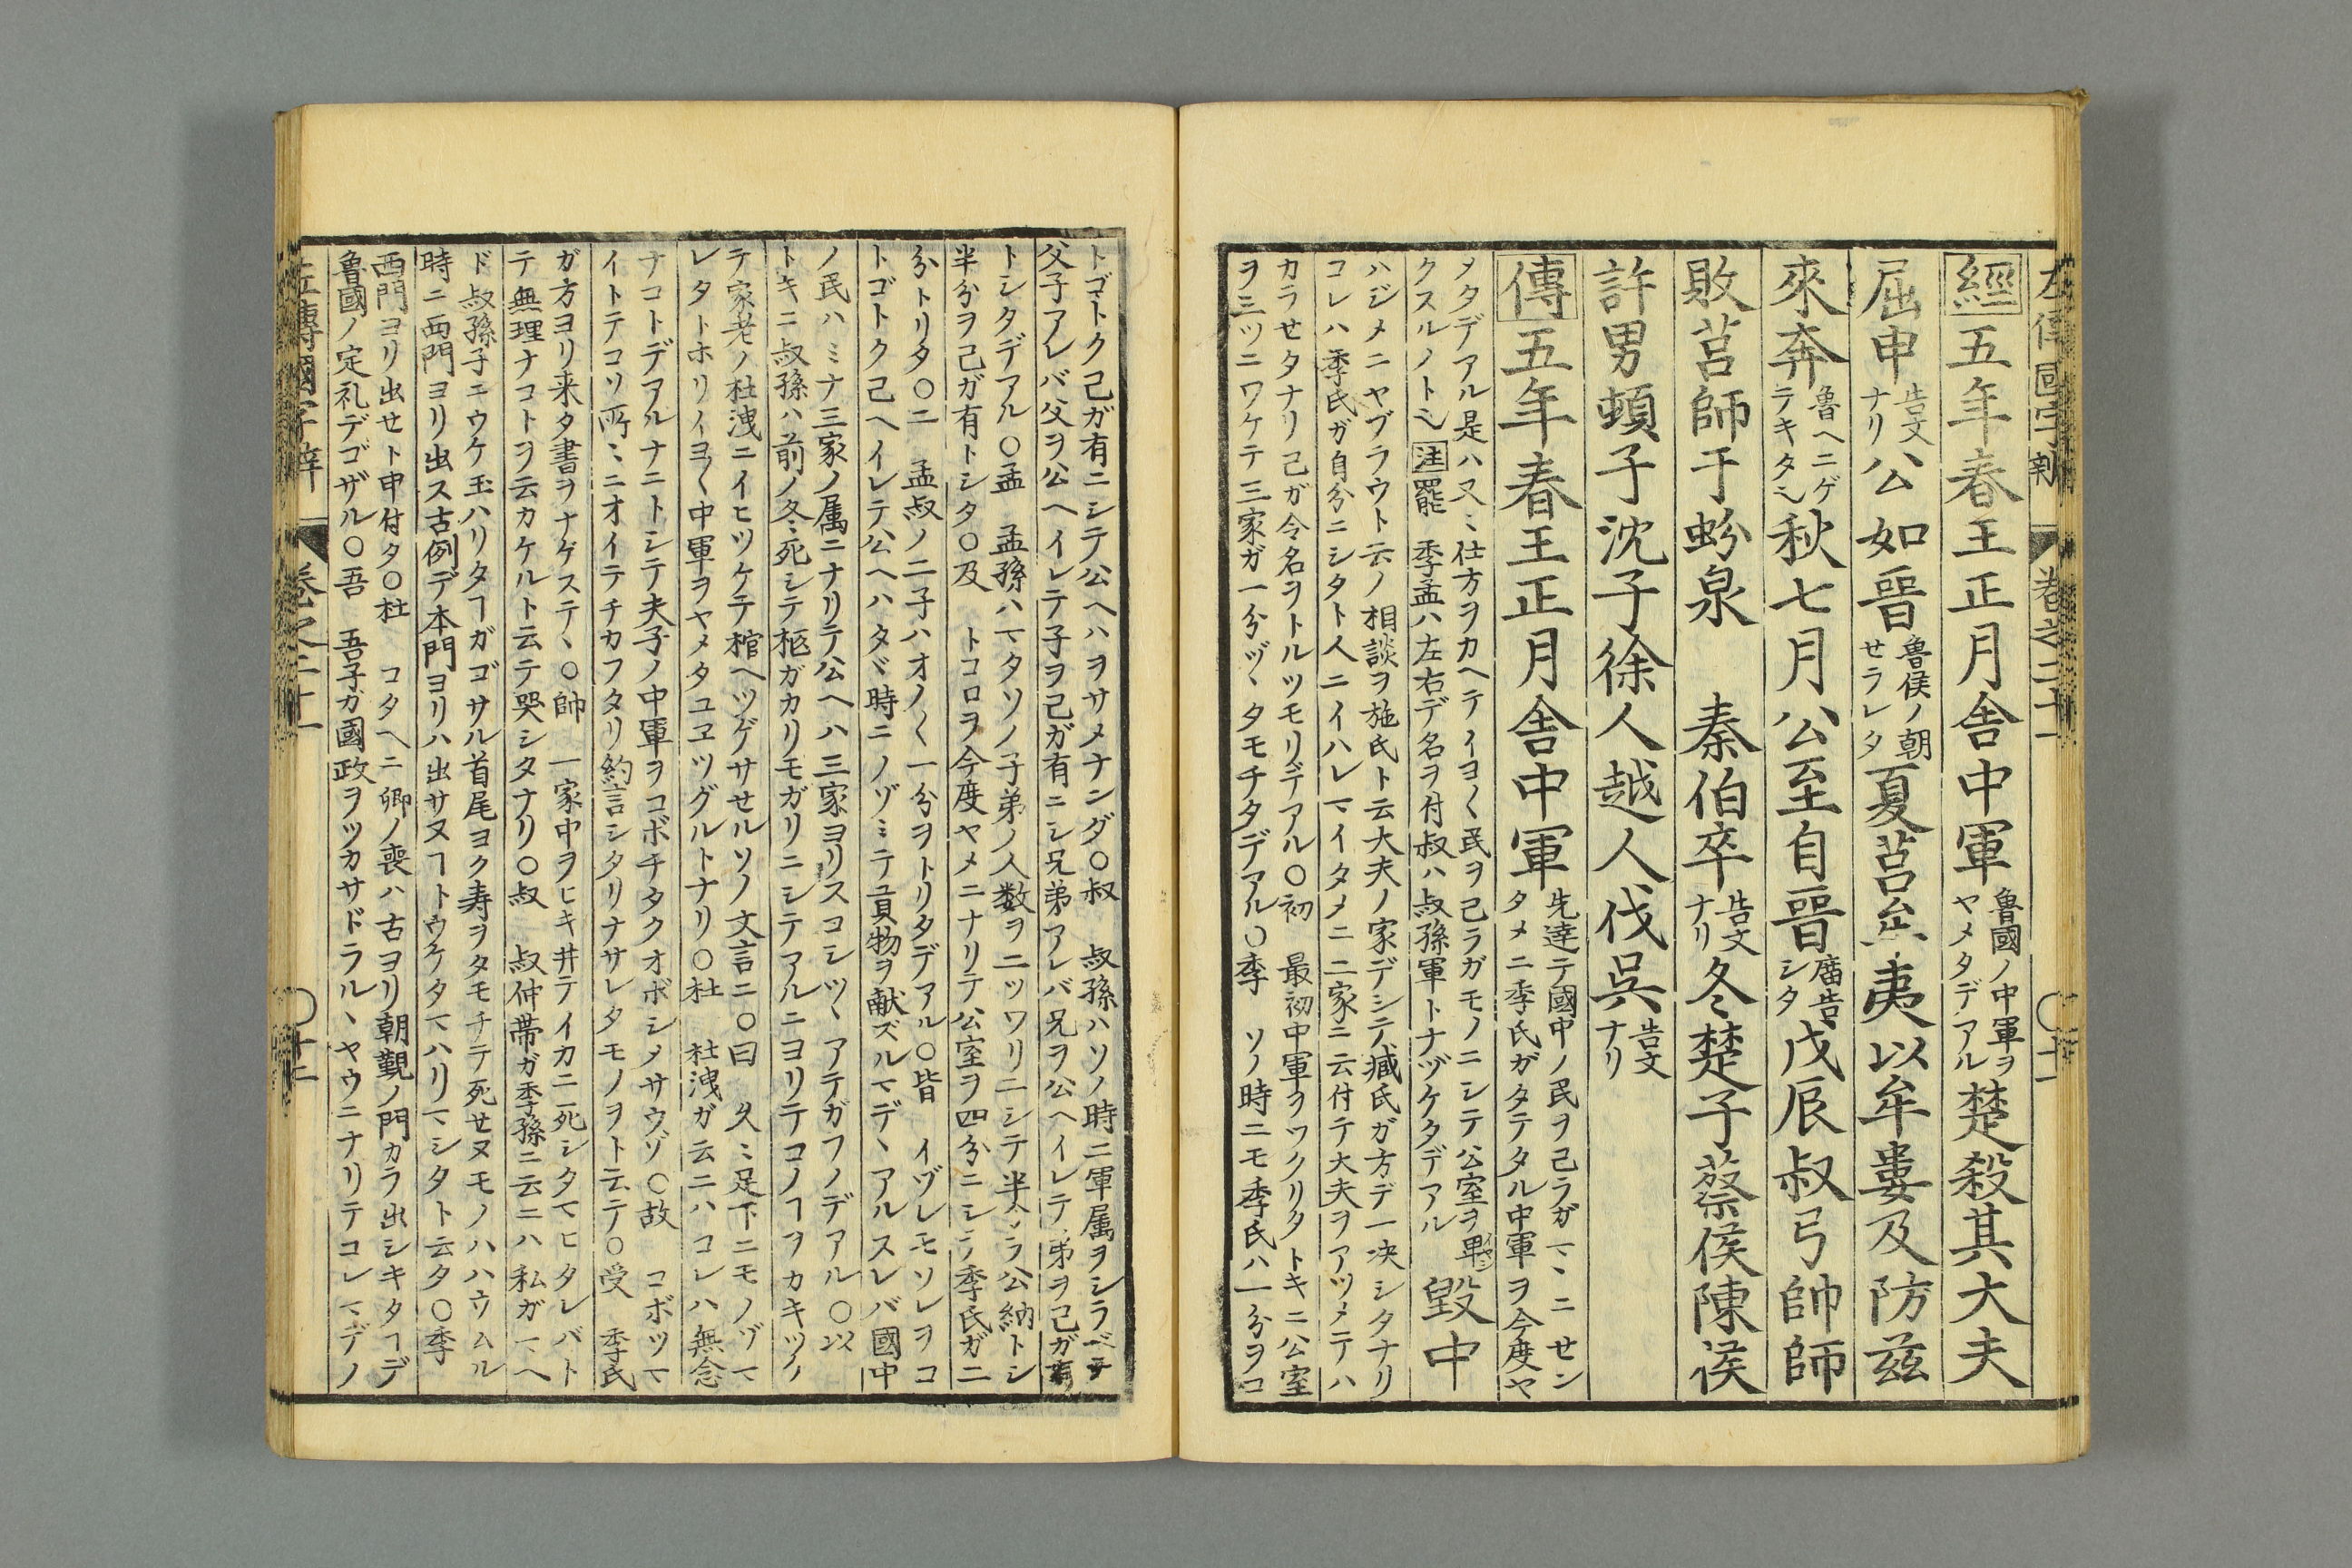 左傳國字辯 卷之二十一 〇十一
經五年春王正月舍中軍魯國ノ中軍ヲヤメタデアル楚殺其大夫
屈申告文ナリ公如晉魯侯ノ朝せラレタ夏莒牟夷以牟婁及防茲
來奔魯ヘニゲテキタ乀秋七月公至自晉廣告シタ戊辰叔弓帥師
敗莒師于蚡泉 秦伯卒告文ナリ冬楚子蔡侯陳侯
許男頓子沈子徐人越人伐吳告文ナリ
傳五年春王正月舍中軍先達テ國中ノ民ヲ己ラガマヽニせンタメニ季氏ガタテタル中軍ヲ今度ヤ
メタデアル是ハ又〻仕方ヲカヘテイヨ〱民ヲ己ラガモノニシテ公室ヲ卑
クスルノト乀注罷 季孟ハ左右デ名ヲ付叔ハ叔孫軍トナヅケタデアル 毀中
ハジメニヤブラウト云ノ相談ヲ施氏ト云大夫ノ家デシ臧氏ガ方デ一决シタナリ
コレハ季氏ガ自分ニシタト人ニイハレマイタメニ二家ニ云付テ大夫ヲアツメテハ
カラせタナリ己ガ令名ヲトルツモリデアル〇初 最初中軍ヲツクリタトキニ公室
ヲ三ツニワケテ三家ガ一分ヅヽタモチタデアル〇季 ソノ時ニモ季氏ハ一分ヲコ
トゴトク己ガ有ニシテ公ヘハヲサメナンダ〇叔 叔孫ハソノ時ニ軍属ヲシラベテ
父子アレバ父ヲ公ヘイレテ子ヲ己ガ有ニシ兄弟アレバ兄ヲ公ヘイレテ弟ヲ己ガ有
トシタデアル〇孟 孟孫ハマタソノ子弟ノ人数ヲ二ツワリニシテ半分ヲ公納トシ
半分ヲ己ガ有トシタ〇及 トコロヲ今度ヤメニナリテ公室ヲ四分ニシテ季氏ガ二
分トリタ〇二 孟叔ノ二子ハオノ〱一分ヲトリタデアル〇皆 イヅレモソレヲコ
トゴトク己ヘイレテ公ヘハタヾ時ニノゾミテ貢物ヲ献ズルマデヽアルスレバ國中
ノ民ハミナ三家ノ属ニナリテ公ヘハ三家ヨリスコシヅヽアテガフノデアル〇以
トキニ叔孫ハ前ノ冬ニ死シテ柩ガカリモガリニシテアルニヨリテコノヿヲカキツ
テ家老ノ杜洩ニイヒツケテ棺ヘツゲサせルソノ文言ニ〇曰 久〻足下ニモノゾマ
レタトホリイヨ〱中軍ヲヤメタユヱツグルトナリ〇杜 杜洩ガ云ニハコレハ無念
ナコトデアルナニトシテ夫子ノ中軍ヲコボチタクオボシメサウゾ〇故 コボツマ
イトテコソ所〻ニオイテチカフタリ約言シタリナサレタモノヲト云テ〇受 季氏
ガ方ヨリ来タ書ヲナゲステヽ〇帥 一家中ヲヒキ井テイカニ死シタマヒタレバト
テ無理ナコトヲ云カケルト云テ哭シタナリ〇叔 叔仲帯ガ季孫ニ云ニハ私ガマヘ
ド叔孫子ニウケ玉ハリタヿガゴサル首尾ヨク寿ヲタモチテ死せヌモノハハウムル
時ニ西門ヨリ出ス古例デ本門ヨリハ出サヌヿトウケタマハリマシタト云タ〇季
西門ヨリ出せト申付タ〇杜 コタヘニ卿ノ喪ハ古ヨリ朝覲ノ門カラ出シキタヿデ
魯國ノ定礼デゴザル〇吾 吾子ガ國政ヲツカサドラルヽヤウニナリテコレマデノ
左傳國字辯 卷之二十一 〇十二